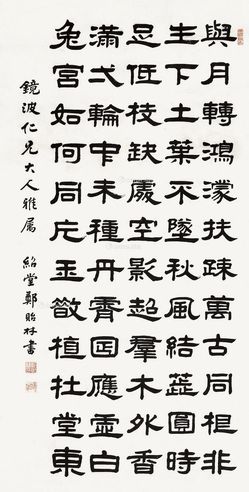 與月轉鴻濛扶疎萬古同根非
生下土葉不墜秋風結蕋圓時
足低枝缺處空影超羣木外香
滿弌輪中未種丹霄日應虛白
兔宮如何同片玉欲植杜堂東
鏡波仁兄大人雅属
紹堂鄭貽林書